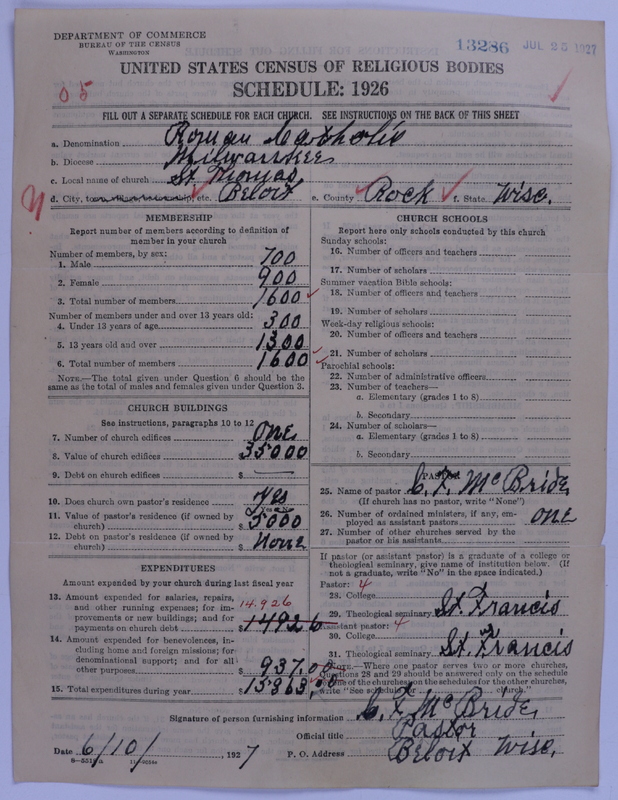 DEPARTMENT OF COMMERCE
BUREAU OF THE CENSUS
WASHINGTON
13286 JUL 25 1927
UNITED STATES CENSUS OF RELIGIOUS BODIES
SCHEDULE: 1926
05
FILL OUT A SEPARATE SCHEDULE FOR EACH CHURCH. SEE INSTRUCTIONS ON THE BACK OF THIS SHEET
a. Denomination Roman Catholic
b. Diocese Milwaukee
c. Local name of church St. Thomas
d. City, etc. Beloit e. County Rock f. State Wisc.
MEMBERSHIP
Report number of members according to definition of
member in your church
Number of members, by sex:
1. Male 700
2. Female 900
3. Total number of members 1600
Number of members under and over 13 years old:
4. Under 13 years of age 300
5. 13 years old and over 1300
6. Total number of members 1600
NOTE.—The total given under Question 6 should be the
same as the total of males and females given under Question 3.
CHURCH BUILDINGS
See instructions, paragraphs 10 to 12
7. Number of church edifices One
8. Value of church edifices $ 35000
9. Debt on church edifices $ —
10. Does church own pastor's residence Yes
Yes or No
11. Value of pastor's residence (if owned by
church) $ 5000
12. Debt on pastor's residence (if owned by
church) $ None
EXPENDITURES
Amount expended by your church during last fiscal year
13. Amount expended for salaries, repairs,
and other running expenses; for im-
provements or new buildings; and for
payments on church debt $ 14926
14,926
14. Amount expended for benevolences, in-
cluding home and foreign missions; for
denominational support; and for all
other purposes $ 937.00
15. Total expenditures during year $ 15863.00
CHURCH SCHOOLS
Report here only schools conducted by this church
Sunday schools:
16. Number of officers and teachers
17. Number of scholars
Summer vacation Bible schools:
18. Number of officers and teachers
19. Number of scholars
Week-day religious schools:
20. Number of officers and teachers
21. Number of scholars
Parochial schools:
22. Number of administrative officers
23. Number of teachers—
a. Elementary (grades 1 to 8)
b. Secondary
24. Number of scholars—
a. Elementary (grades 1 to 8)
b. Secondary
PASTOR
25. Name of pastor C. F. McBride
(If church has no pastor, write "None")
26. Number of ordained ministers, if any, em-
ployed as assistant pastors one
27. Number of other churches served by the
pastor or his assistants
If pastor (or assistant pastor) is a graduate of a college or
theological seminary, give name of institution below. (If
not a graduate, write "No" in the space indicated.)
Pastor: 4
28. College
29. Theological seminary St. Francis
Assistant pastor: 4
30. College
31. Theological seminary St. Francis
NOTE.—Where one pastor serves two or more churches,
Questions 28 and 29 should be answered only on the schedule
for one of the churches; on the schedules for the other churches,
write "See schedule for church."
Signature of person furnishing information C. F. McBride
Official title Pastor
Date 6/10/, 1927 P. O. Address Beloit Wisc.